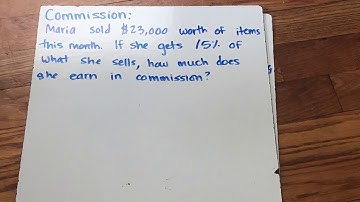 Commission:
Maria sold $23,000 worth of items
this month. If she gets 15% of
what she sells, how much does
she earn in commission?